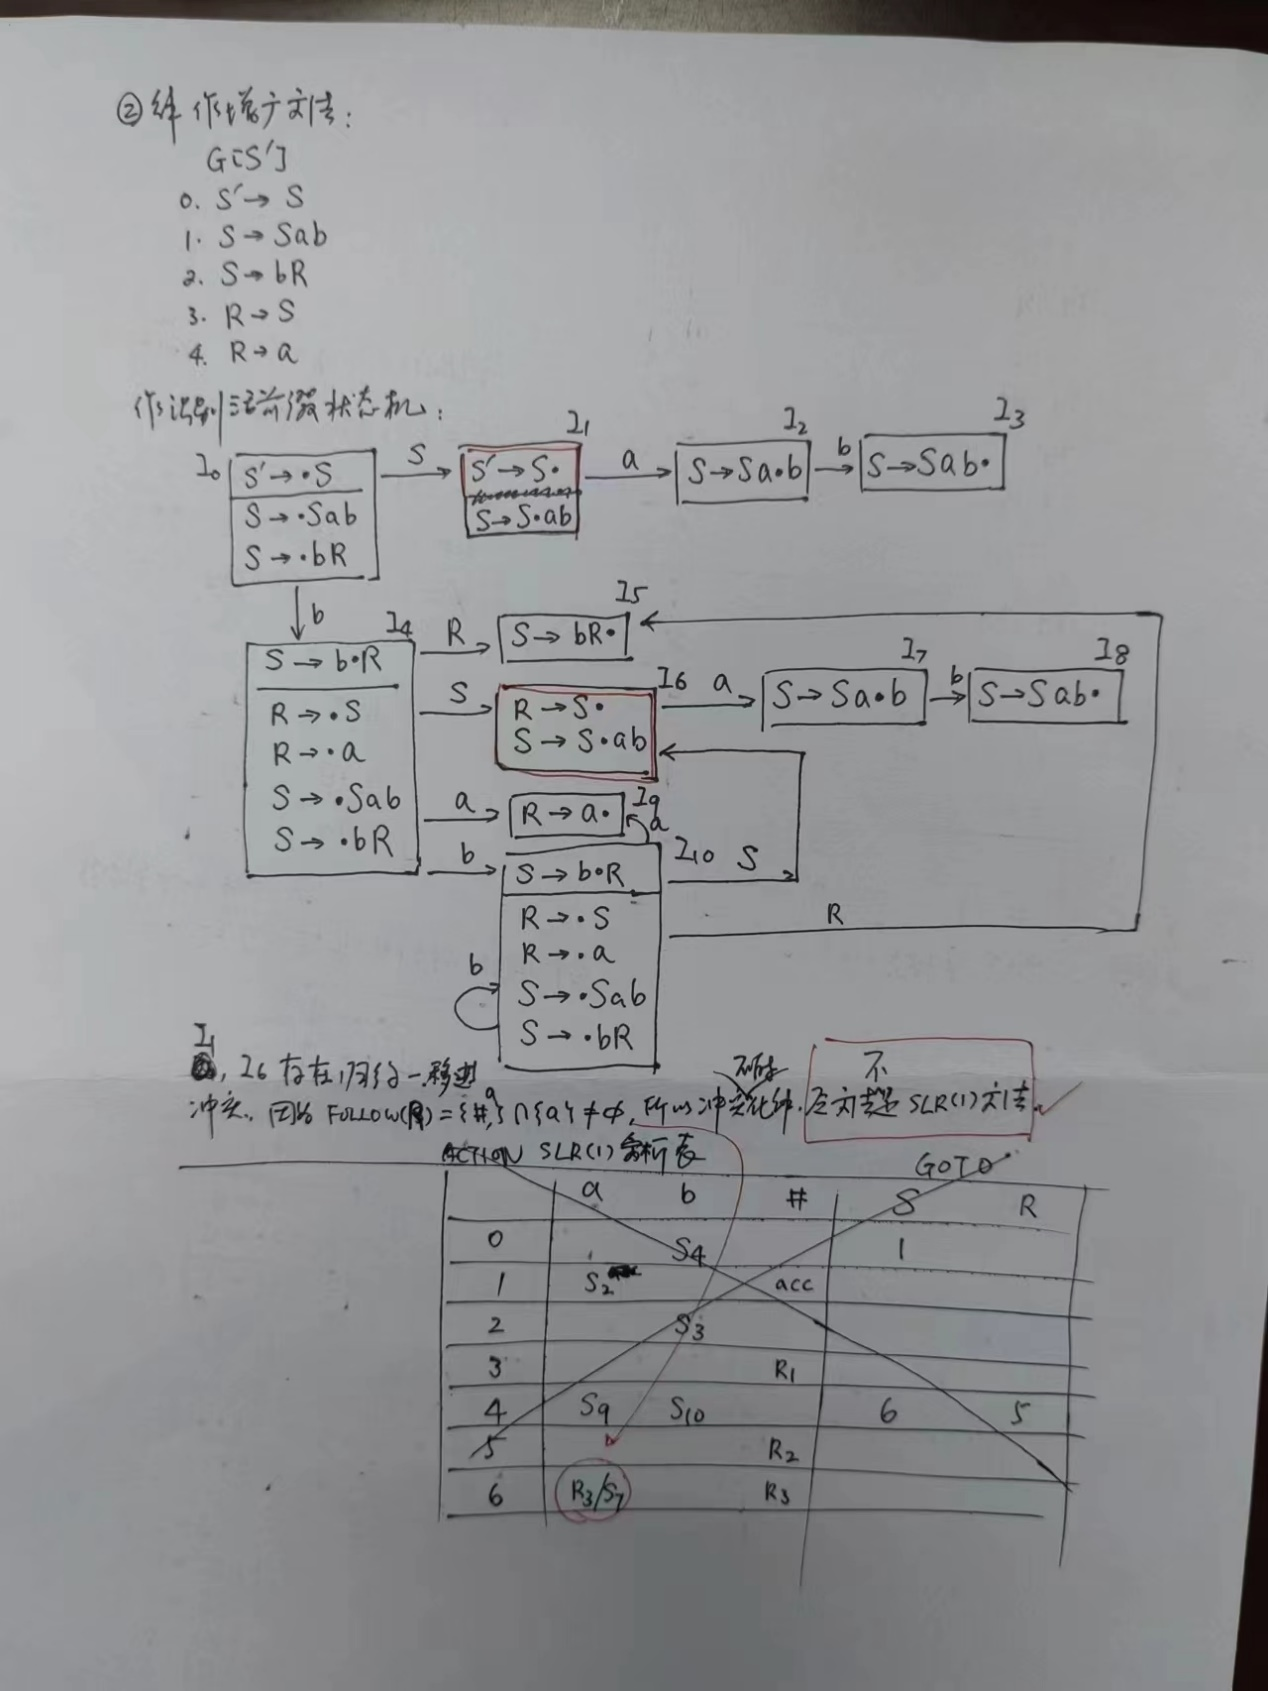 ②解 作增广文法:
G[S']
0. S'→ S
1. S→ Sab
2. S→ bR
3. R→ S
4. R→ a
作识别活前缀状态机:
I0
S'→·S
S→·Sab
S→·bR
S
I1
S'→S·
S→S·ab
a
I2
S→Sa·b
b
I3
S→Sab·
b
I4
S→b·R
R→·S
R→·a
S→·Sab
S→·bR
R
I5
S→bR·
S
I6
R→S·
S→S·ab
a
I7
S→Sa·b
b
I8
S→Sab·
a
I9
R→a·
a
b
I10
S→b·R
R→·S
R→·a
S→·Sab
S→·bR
S
R
b
I1
, I6 存在归约-移进
冲突. 因为 FOLLOW(R)={#,a}∩{a}≠φ, 所以冲突 不 SLR(1)文法.
ACTION SLR(1)分析表 GOTO
a b # S R
0 S4 1
1 S2 acc
2 S3
3 R1
4 S9 S10 6 5
5 R2
6 R3/S7 R3